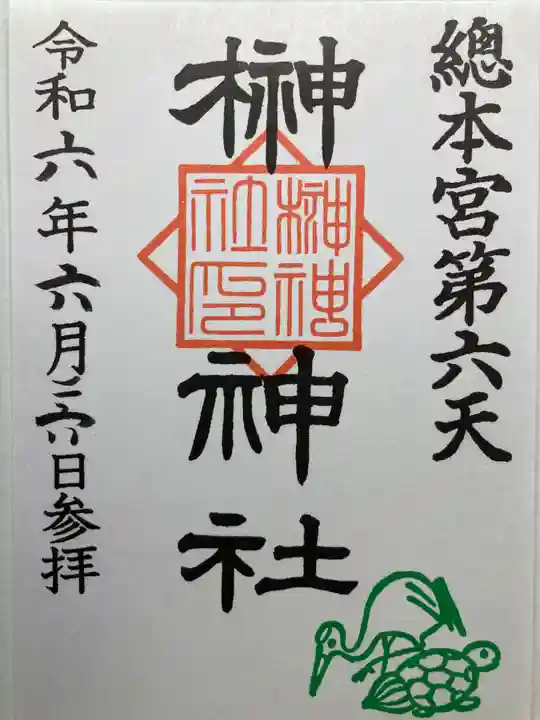 總本宮第六天
榊神社
榊神
社印
令和六年六月日参拝